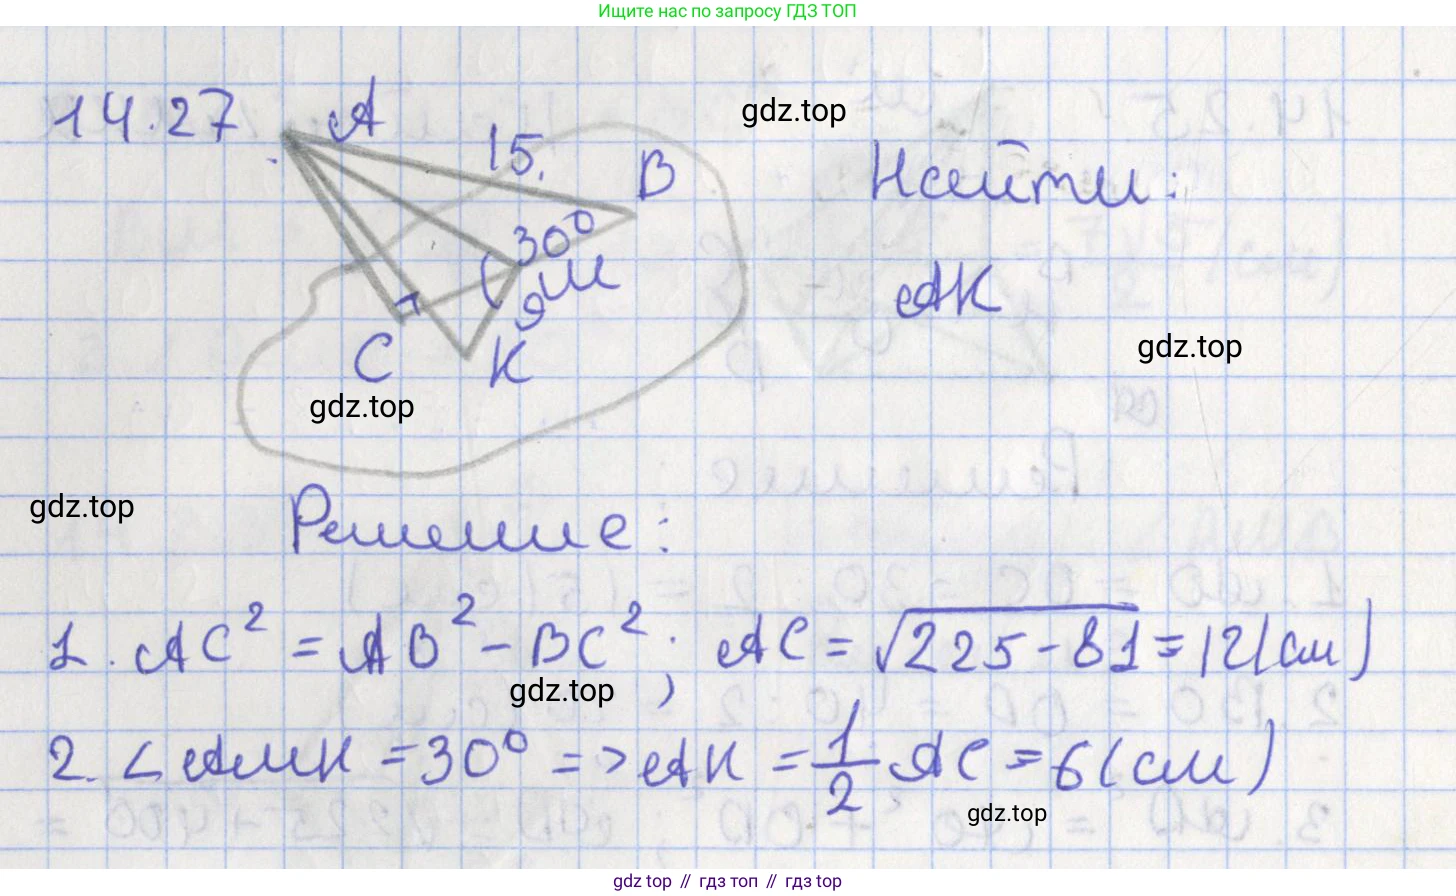 Ищите нас по запросу ГДЗ ТОП
14.27
A
gdz.top
15.
B
Найти:
30°
M
9
AK
C
K
gdz.top
gdz.top
gdz.top
Решение:
1. AC² = AB² - BC²; AC = √225-81 = 12(см)
gdz.top
2. ∠AMK = 30° => AK = 1/2 AC = 6(см)
gdz.top
gdz top // гдз топ // gdz top